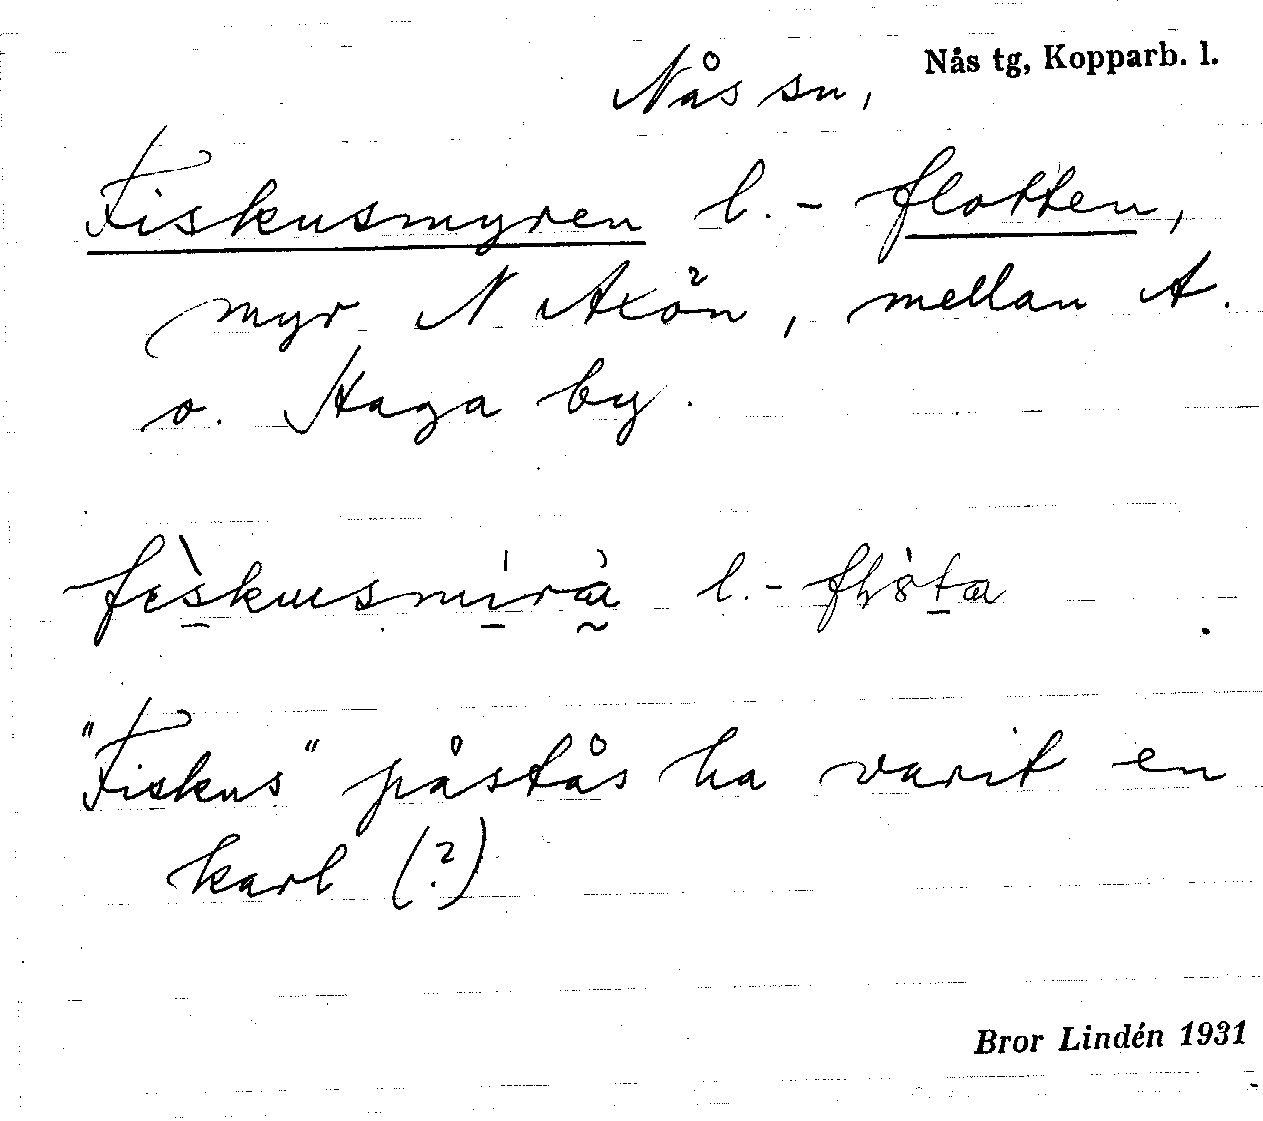 Nås sn, Nås tg, Kopparb. l.
Fiskusmyren l. - flotten,
myr N Axön, mellan A.
o. Haga by.
l. -
"Fiskus" påstås ha varit en
karl (?)
Bror Lindén 1931